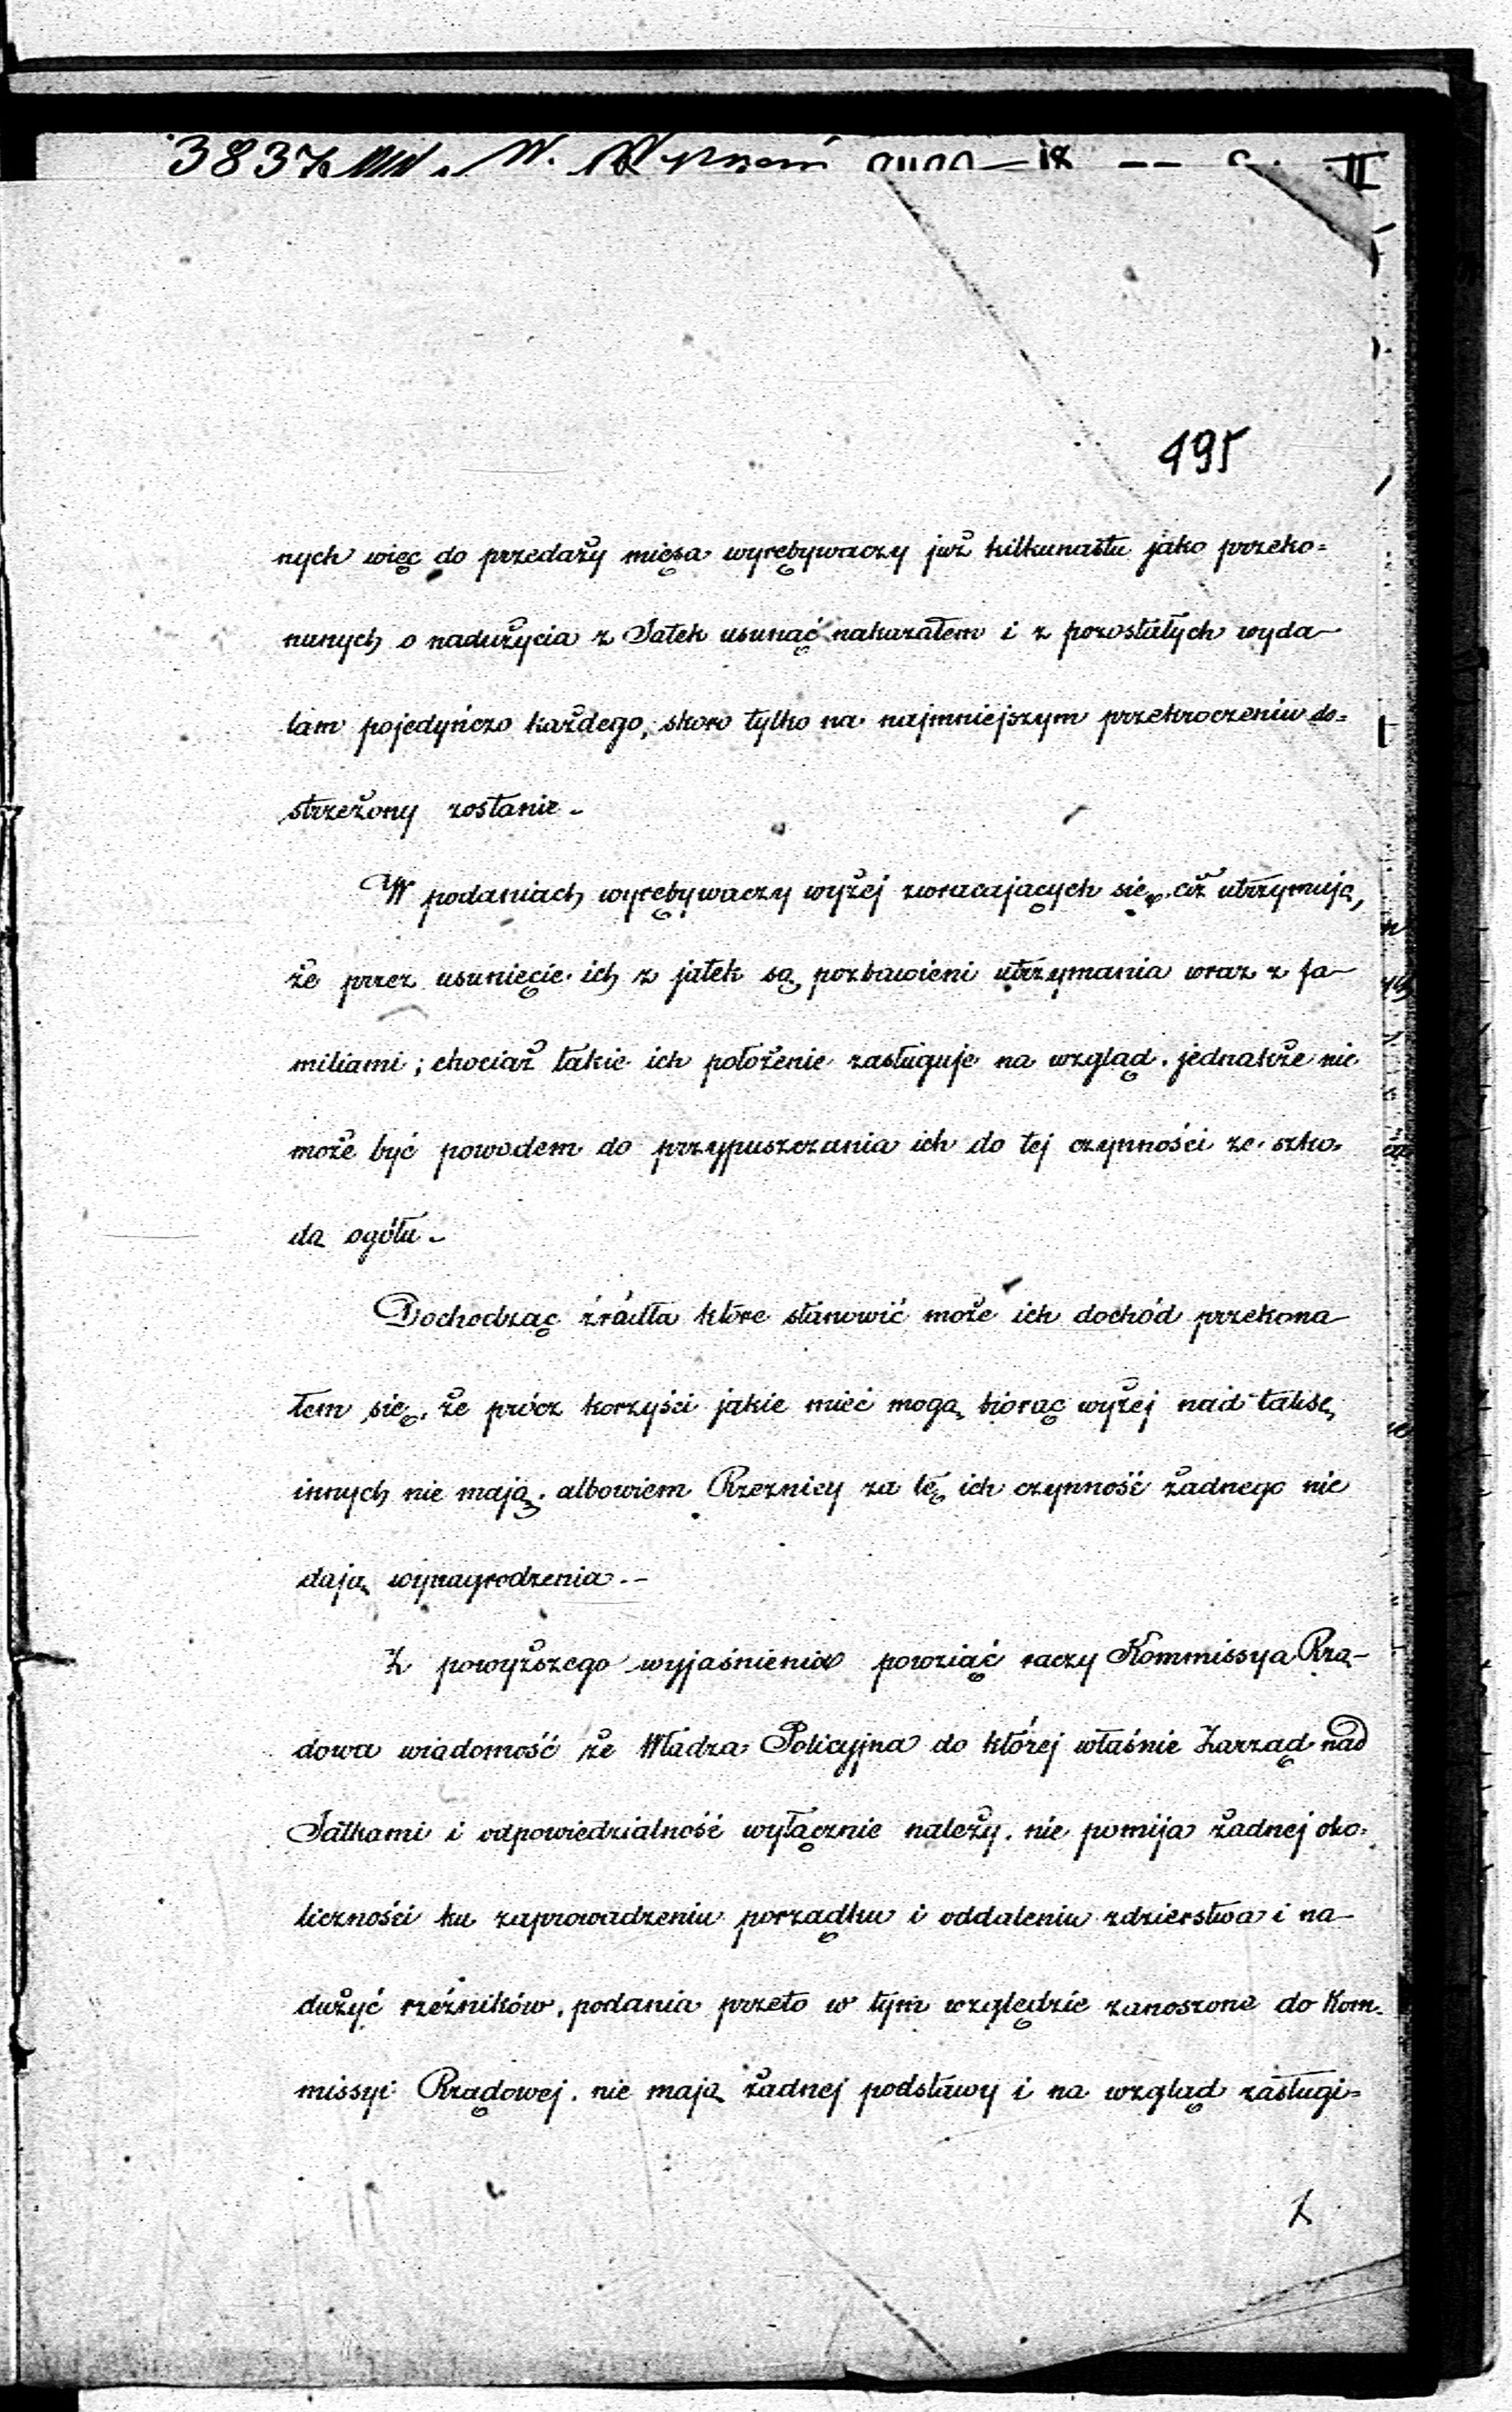 495
nych więc do przedaży mięsa wyrębywaczy już kilkunastu jako przeko=
nanych o nadużycia z Jatek usunąć nakazałem i z pozostałych wyda–
lam pojedyńczo każdego, skoro tylko na najmniejszym przekroczeniu do=
strzeżony zostanie.
W podaniach wyrębywaczy wyżej zwracających się, ciż utrzymują,
że przez usunięcie ich z jatek są pozbawieni utrzymania wraz z fa–
miliami; chociaż takie ich położenie zasługuje na wzgląd, jednakże nie
może być powodem do przypuszczania ich do tej czynności ze szko=
dą ogółu.
Dochodząc źródła które stanowić może ich dochód przekona–
łem się, że prócz korzyści jakie mieć mogą biorąc wyżej nad taksę,
innych nie mają, albowiem Rzeznicy za tę ich czynność żadnego nie
dają wynagrodzenia.–
Z powyższego wyjaśnienia powziąć raczy Kommissya Rzą–
dowa wiadomość że Władza Policyjna do której właśnie Zarząd nad
Jatkami i odpowiedzialność wyłącznie należy, nie pomija żadnej oko=
liczności ku zaprowadzeniu porządku i oddaleniu zdzierstwa i na–
dużyć rzeźników, podania przeto w tym względzie zanoszone do Kom=
missyi Rządowej, nie mają żadnej podstawy i na wzgląd zasługi=